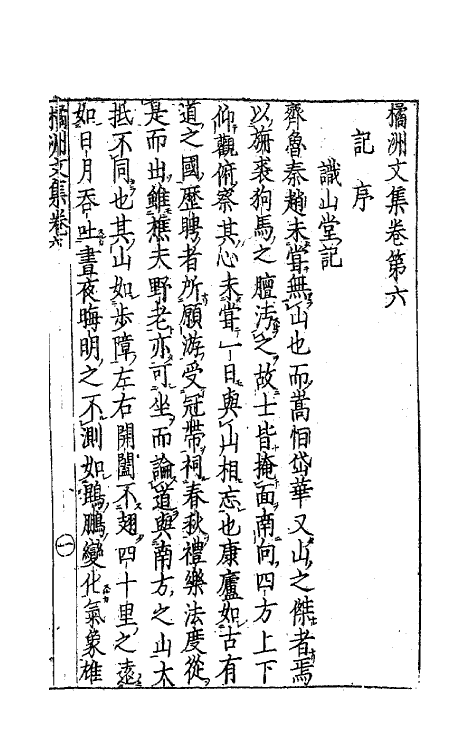 橘洲文集卷第六
記序
識山堂記
齊魯秦趙未甞無山也而嵩恒岱華又山之傑者焉
以旃裘狗馬之膻洿之故士皆掩面南向四方上下
仰觀俯察其心未甞一日與山相忘也康廬如古有
道之國歷聘者所願游受冠帶祠春秋禮樂法度從
是而出雖樵夫野老亦可坐而論道與南方之山大
抵不同也其山如步障左右開闔不翅四十里之遠
如日月吞吐晝夜晦明之不測如鵾鵬變化氣象雄
橘洲文集卷六
一